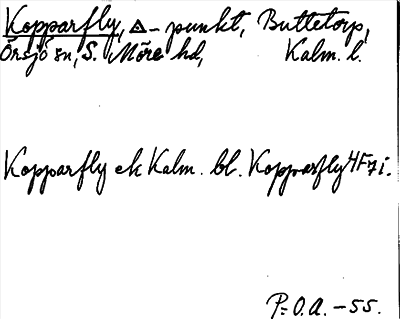 Kopparfly, △ - punkt, Buttetorp,
Örsjö sn, S. Möre hd, Kalm. l.
Kopparfly ek Kalm. bl. Kopparfly 4F7i.
P.O.A. - 55.